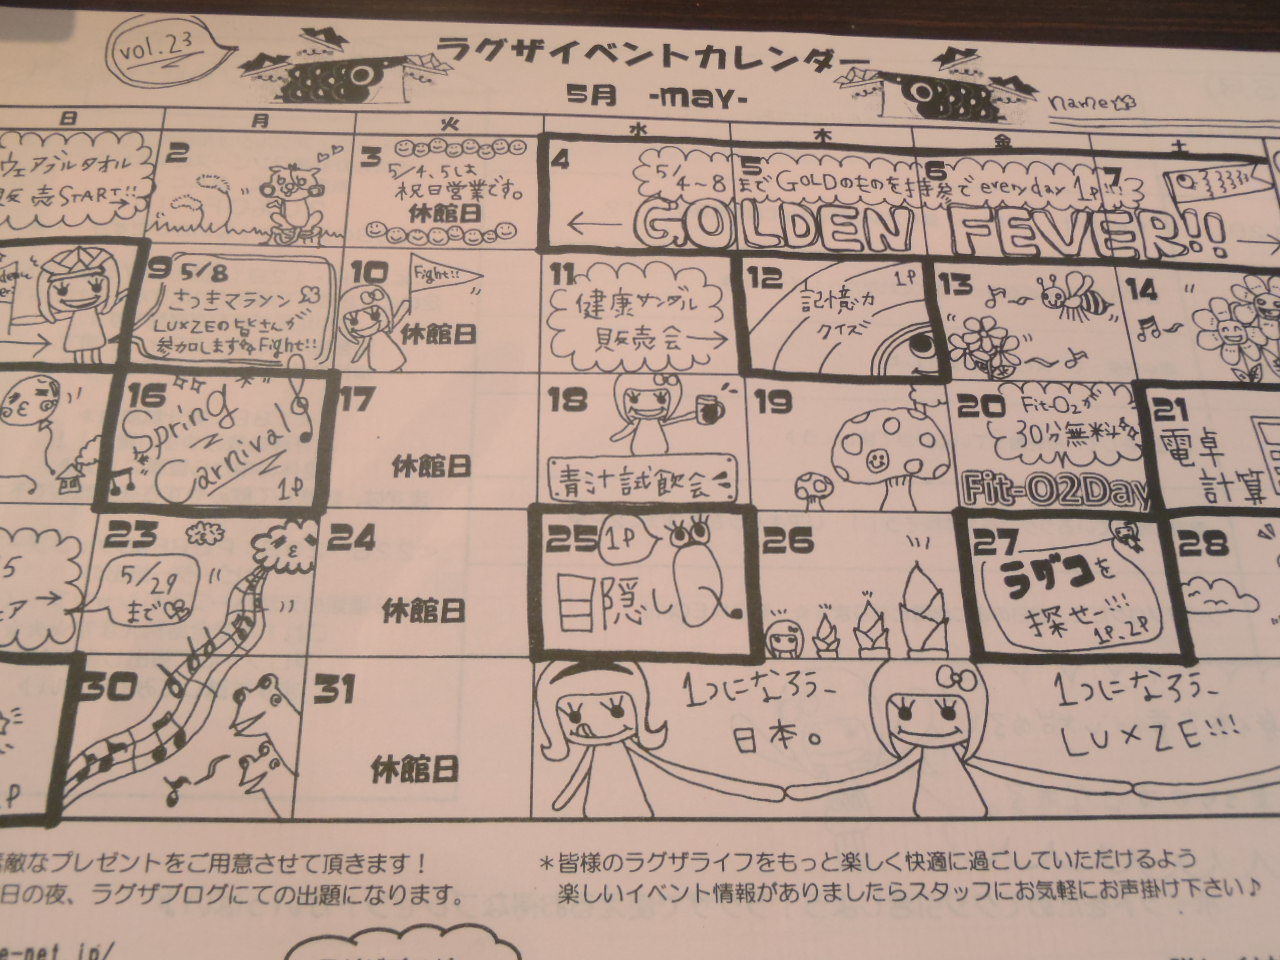 vol.23
ラグザイベントカレンダー
5月 -may-
name
日 月 火 水 木 金 土
ウェアブルタオル
販売START!!
2
3
5/4、5は
祝日営業です。
休館日
4
5
6
7
5/4~8までGOLDのものを持参でevery day 1P!!!
GOLDEN FEVER!!
9
5/8
さつきマラソン
LUXZEの皆さんが
参加しますFight!!
10
Fight!!
休館日
11
健康サンダル
販売会→
12
1P
記憶力
クイズ
13
14
16
Spring
Carnival
1P
17
休館日
18
青汁試飲会
19
20
Fit-O2が
30分無料
Fit-O2Day
21
電卓
計算
23
5/29
まで
24
休館日
25
1P
目隠し
26
27
ラグコを
探せー!!!
1P、2P
28
30
31
休館日
1つになろう、
日本。
1つになろう、
LUXZE!!!
敵なプレゼントをご用意させて頂きます！
日の夜、ラグザブログにての出題になります。
＊皆様のラグザライフをもっと楽しく快適に過ごしていただけるよう
楽しいイベント情報がありましたらスタッフにお気軽にお声掛け下さい♪
e-net.jp/